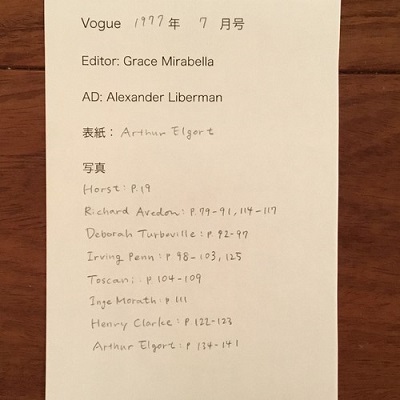 Vogue 1977年 7 月号
Editor: Grace Mirabella
AD: Alexander Liberman
表紙： Arthur Elgort
写真
Horst: P.19
Richard Avedon: P.79-91, 114-117
Deborah Turbeville: P.92-97
Irving Penn: P.98-103, 125
Toscani: P 104-109
Inge Morath: P 111
Henry Clarke: P 122-123
Arthur Elgort: P 134-141